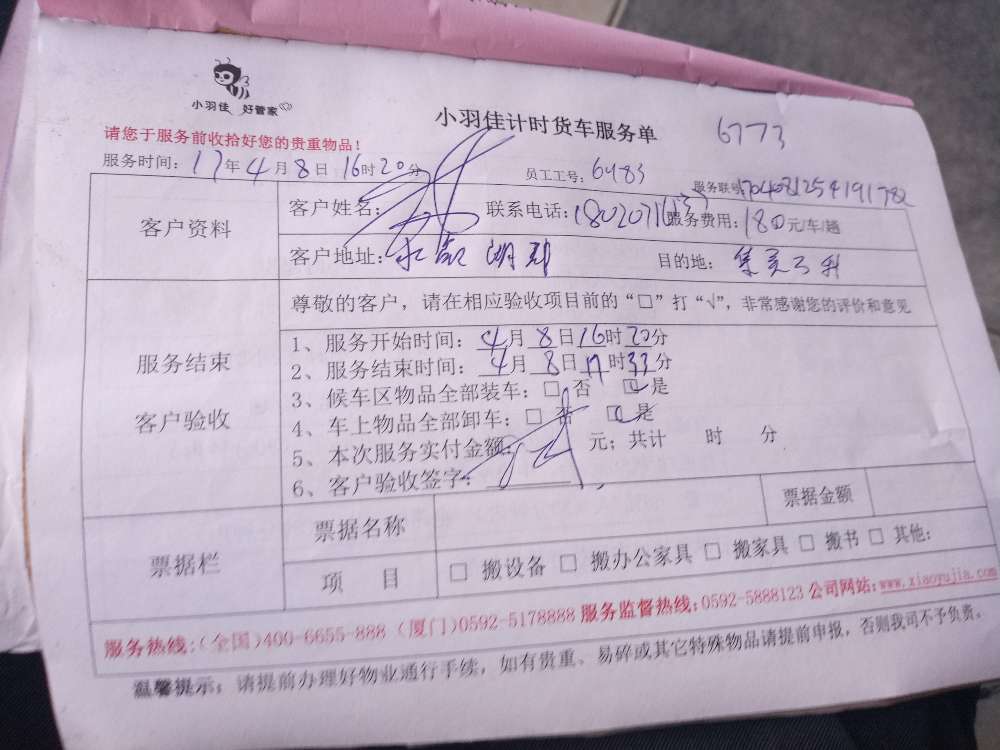 小羽佳 好管家
小羽佳计时货车服务单
6773
请您于服务前收拾好您的贵重物品!
服务时间: 17年4月8日16时20分
员工工号: 6483
服务联号
客户资料
客户姓名:
联系电话:
服务费用: 180元/车/趟
客户地址:
目的地:
尊敬的客户，请在相应验收项目前的“□”打“√”，非常感谢您的评价和意见
服务结束
客户验收
1、服务开始时间: 4月8日16时20分
2、服务结束时间: 4月8日17时33分
3、候车区物品全部装车: □ 否 □ 是
4、车上物品全部卸车: □ 否 □ 是
5、本次服务实付金额: 元; 共计 时 分
6、客户验收签字:
票据栏
票据名称
票据金额
项 目
□ 搬设备 □ 搬办公家具 □ 搬家具 □ 搬书 □ 其他:
服务热线: (全国)400-6655-888 (厦门)0592-5178888 服务监督热线: 0592-5888123 公司网站: www.xiaoyujia.com
温馨提示: 请提前办理好物业通行手续，如有贵重、易碎或其它特殊物品请提前申报，否则我司不予负责。